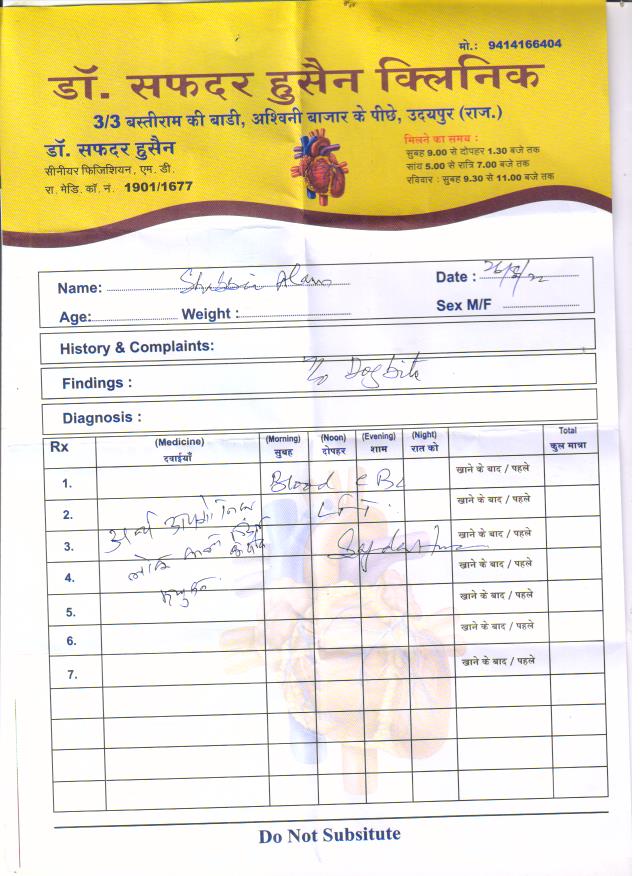 मो.: 9414166404
डॉ. सफदर हुसैन क्लिनिक
3/3 बस्तीराम की बाडी, अश्विनी बाजार के पीछे, उदयपुर (राज.)
डॉ. सफदर हुसैन
सीनीयर फिजिशियन, एम. डी.
रा. मेडि. कॉ. नं. 1901/1677
मिलने का समय :
सुबह 9.00 से दोपहर 1.30 बजे तक
सांय 5.00 से रात्रि 7.00 बजे तक
रविवार : सुबह 9.30 से 11.00 बजे तक
Name: Shabbir Alam Date :
Age: Weight : Sex M/F
History & Complaints:
Findings : Dogbite
Diagnosis :
Rx (Medicine) (Morning) (Noon) (Evening) (Night) Total
दवाईयाँ सुबह दोपहर शाम रात को कुल मात्रा
1. Blood CBC खाने के बाद / पहले
2. LFT खाने के बाद / पहले
3. खाने के बाद / पहले
4. खाने के बाद / पहले
5. खाने के बाद / पहले
6. खाने के बाद / पहले
7. खाने के बाद / पहले
Do Not Subsitute